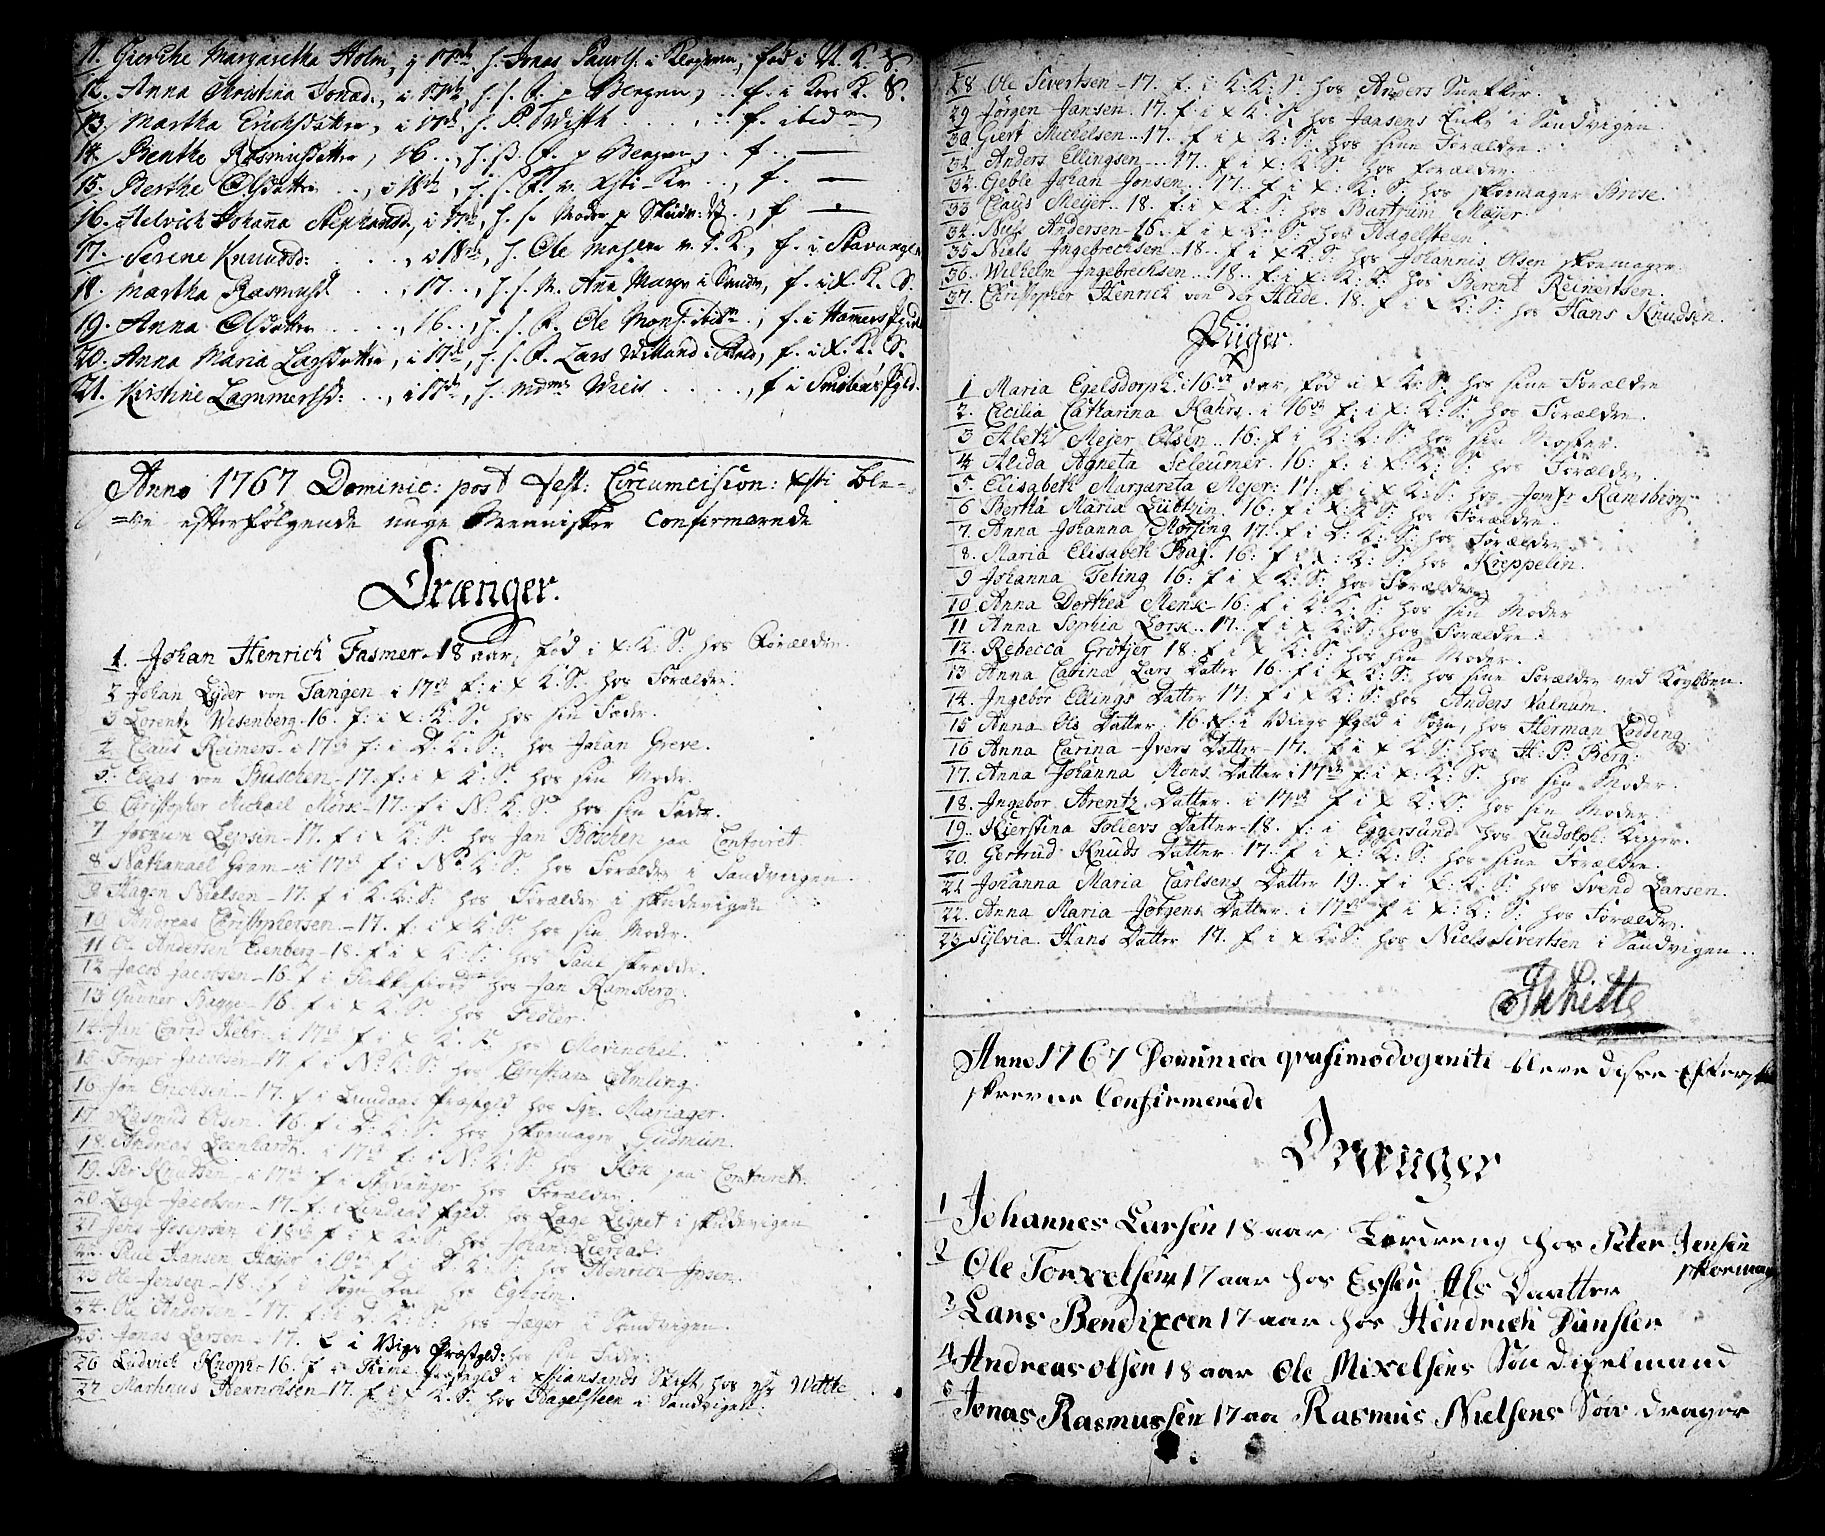 11. Gierthe Margaretha Holm, i 17de h. Jonas Paulf. i fød i N. K. S
12. Anna Kristina Jonad., i 17de h. s. F. p Bergen, .. f. i Kors K. S.
13. Martha Erichsdatter, i 17de, h. P. Wifth . . . . f. ibidem
14. Benthe Rasmusdatter, 16 .., h. s. F. p Bergen, . f. . —
15. Berthe Olsdatter . . , i 18de, h. s. F. v. Xsti-Kr . . , f. —
16. Helvich Johanna Stephansd, i 17de, h. s. Moder p Skudv: . , f —
17. Serene Knuudsd: . . . , i 18de, h. Ole Mahler v. K., f. i Stavanger
18. Martha Rasmusd . . . i 17 . . , h. s. M. Ana Margr i Sandv, f. i X. K. S.
19. Anna Olsdatter . . . ., 16 . ., h. s. F. Ole Mons: ibid: . , f. i Hamers Pgield
20. Anna Maria Larsdatter, i 17de, h. s. F. Lars i f. i X. K. S.
21. Kirstine Lammersd: . . , i 17de, h. Mdme Wieis . . . . , f i Smolens Pgld.
Anno 1767 Dominic: post Fest: Circumcision: Xsti ble-
=ve efterfølgende unge Mennisker Confirmerede
Drænger.
1. Johan Henrich Fasmer - 18 aar, fød i X: K: S: hos Forælder.
2 Johan Lyder von Tangen - i 17de f: i X K: S: hos Forælder.
3 Lorentz Wesenberg - 16. f: i X: K: S. hos sin Fader.
4 Claus Reimers - i 17de f: i D: K: S: hos Johan Greve.
5. Elias von Büschen - 17. f: i X K: S. hos sin Moder.
6 Christopher Michael Mørse - 17. f i N: K: S: hos sin Fader.
7 Jochum Lepsin - 17. f i X K: S: hos Jan Bøschen paa Contoiret.
8 Nathanael Gram - i 17de f i N: K: S: hos Forælder i Sandvigen.
9 Hagen Nielsen - 17. f i K: K: S: hos Forælder i Skudevigen
10 Andreas Christophersen - 17. f: i X K: S: hos sin Moder.
11 Ole Andersen Eenberg - 18. f i X K: S: hos Paul Skredder.
12 Jacob Jacobsen - 16. f i hos Jan Ramsberg.
13 Gunner Bagge - 16. f i X K: S: hos Fedler.
14. Jan Conrad Hebr. i 17de f i X. K. S. hos Morinchel.
15 Torger Jacobsen - 17. f i N: K: S: hos Christian Amling.
16. Jon Erichsen - 17. f i Lundaas Præstgld hos Sgr. Mariager.
17 Rasmus Olsen. 16. f i D: K: S. hos Skomager Gudmün.
18. Andreas Leenhardt. i 17de f: i N: K: S: hos Kok paa Contoiret.
19. Per Knudsen - i 17de f i Stavanger hos Forælder.
20. Lage Jacobsen - 17. f. i Lindaas Pgld. hos Lage Lisset i Skudevigen
21 Jens Jesensen i 18de f i X K: S: hos Johan Lierdal.
22. Poul Hansen i 19de f i D. K: S: hos Henrich Ipsen.
23 Ole Jensen - 18. f i Sogn dal hos Egholm.
24. Ole Andersen - 17. f i D. K: S: hos Jæger i Sandvigen.
25. Jonas Larsen - 17. f i Vigs Præstgld: hos sin Fader.
26 Ludvich Knoph - 16. f i Præstgld i Xstiansands Stift hos Witthe.
27. Martinus Henrichsen - 17. f i X K: S: hos Hagelsteen i Sandvigen.
28 Ole Sivertsen - 17. f: i K: K: S: hos Anders Snekker.
29 Jørgen Jansen. 17. f i X K: S: hos Jansens Enke i Sandvigen
30. Giert Michelsen. . 17. f i X K: S: hos sine Forældre.
31. Anders Ellingsen . . 17. f i X. K: S: hos Forældre.
32. Geble Johan Jonsen . . 17. f i X: K: S: hos Skoemager Brose.
33 Claus Meyer. . 18. f: i X K: S: hos Bartrum Meyer.
34. Nils Andersen - 16. f i X K: S: hos Hagelsteen.
35 Niels Ingebrechsen . 18 . f i X: K: S: hos Johannis Olsen Skoemager
36. Wilhelm Ingebrechsen . . 18 . f: i X: K: S: hos Berent Reinertsen.
37. Christopher Henrich von der Hude . 18. f i X K: S: hos Hans Knudsen.
Piiger.
1 Maria Egelsdorph: i 16de aar, fød i X K: S: hos sine Forældre
2. Cicilia Catharina Kahrs. i 16de f: i X: K: S: hos Forældre.
3 Aleth Mejer Olsen . . 16: f i K: K: S: hos sin Moster.
4 Alida Agneta Scleumer. 16: f: i X: K: S: hos Forældre.
5. Elisabeth Margareta Mejer: 17. f i X K: S: hos Jomfr Ramsberg
6 Bertha Maria Lüttzin. 16: f i X: K: S: hos Forældre.
7. Anna Johanna Morsing 17. f i D: K: S: hos Forældre
8. Maria Elisabeth Baj. 16: f i X: K: S: hos Kreppelin.
9 Johanna Teting 16: f i X K: S: hos Forældre.
10 Anna Dorthea Mense 16. f i K: K: S: hos sin Moder
11 Anna Sophia Lorse . . 17. f i X K: S: hos Forældre.
12. Rebecca Grøtjer 18: f i X K: S: hos sin Moder.
13 Anna Carina Lars Datter 16. f i X K: S: hos sine Forældre ved
14. Ingebor Ellings Datter 17. f i X K: S: hos Anders Valnum.
15 Anna Ols Datter. 16 f: i Viigs Pgld i Sogn, hos Herman Lødding.
16 Anna Carina Ivers Datter - 17. f i X K: S: hos H. P. Berg.
17. Anna Johanna Mons Datter i 17de f: i X: K: S: hos sin Moder.
18. Ingebor Arentz Datter. i 17de f i X K: S: hos sin Moder
19. Kierstina Toliers Datter - 18. f: i Eggersund hos Ludolph
20. Gertrud Knuds Datter 17. f i X: K: S: hos sine Forældre.
21 Johanna Maria Carlsens Datter 19. f i X: K: S: hos Svend Larsen.
22. Anna Maria Jørgens Datter. i 17de f i X: K: S: hos Forældre.
23 Sylvia Hans Datter 17. f i X K: S: hos Niels Sivertsen i Sandvigen . .
Anno 1767 Dominica qvasimodogeniti bleve disse efter
skrevne Confirmerede
Drænger
1 Johannes Larsen 18 aar, Lærdreng hos Peter Jensen
Skoemag
2 Ole Torxelsen 17 aar hos Als Daatter
3 Lars Bendixen 17 aar hos Hendrich Dünsler
4 Andreas olsen 18 aar Ole Mixelsens Søn Dixelmand
5 Jonas Rasmussen 17 aa Rasmus Nielsens Søn drager